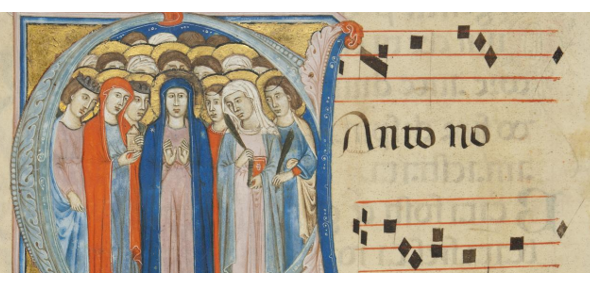 Anto no